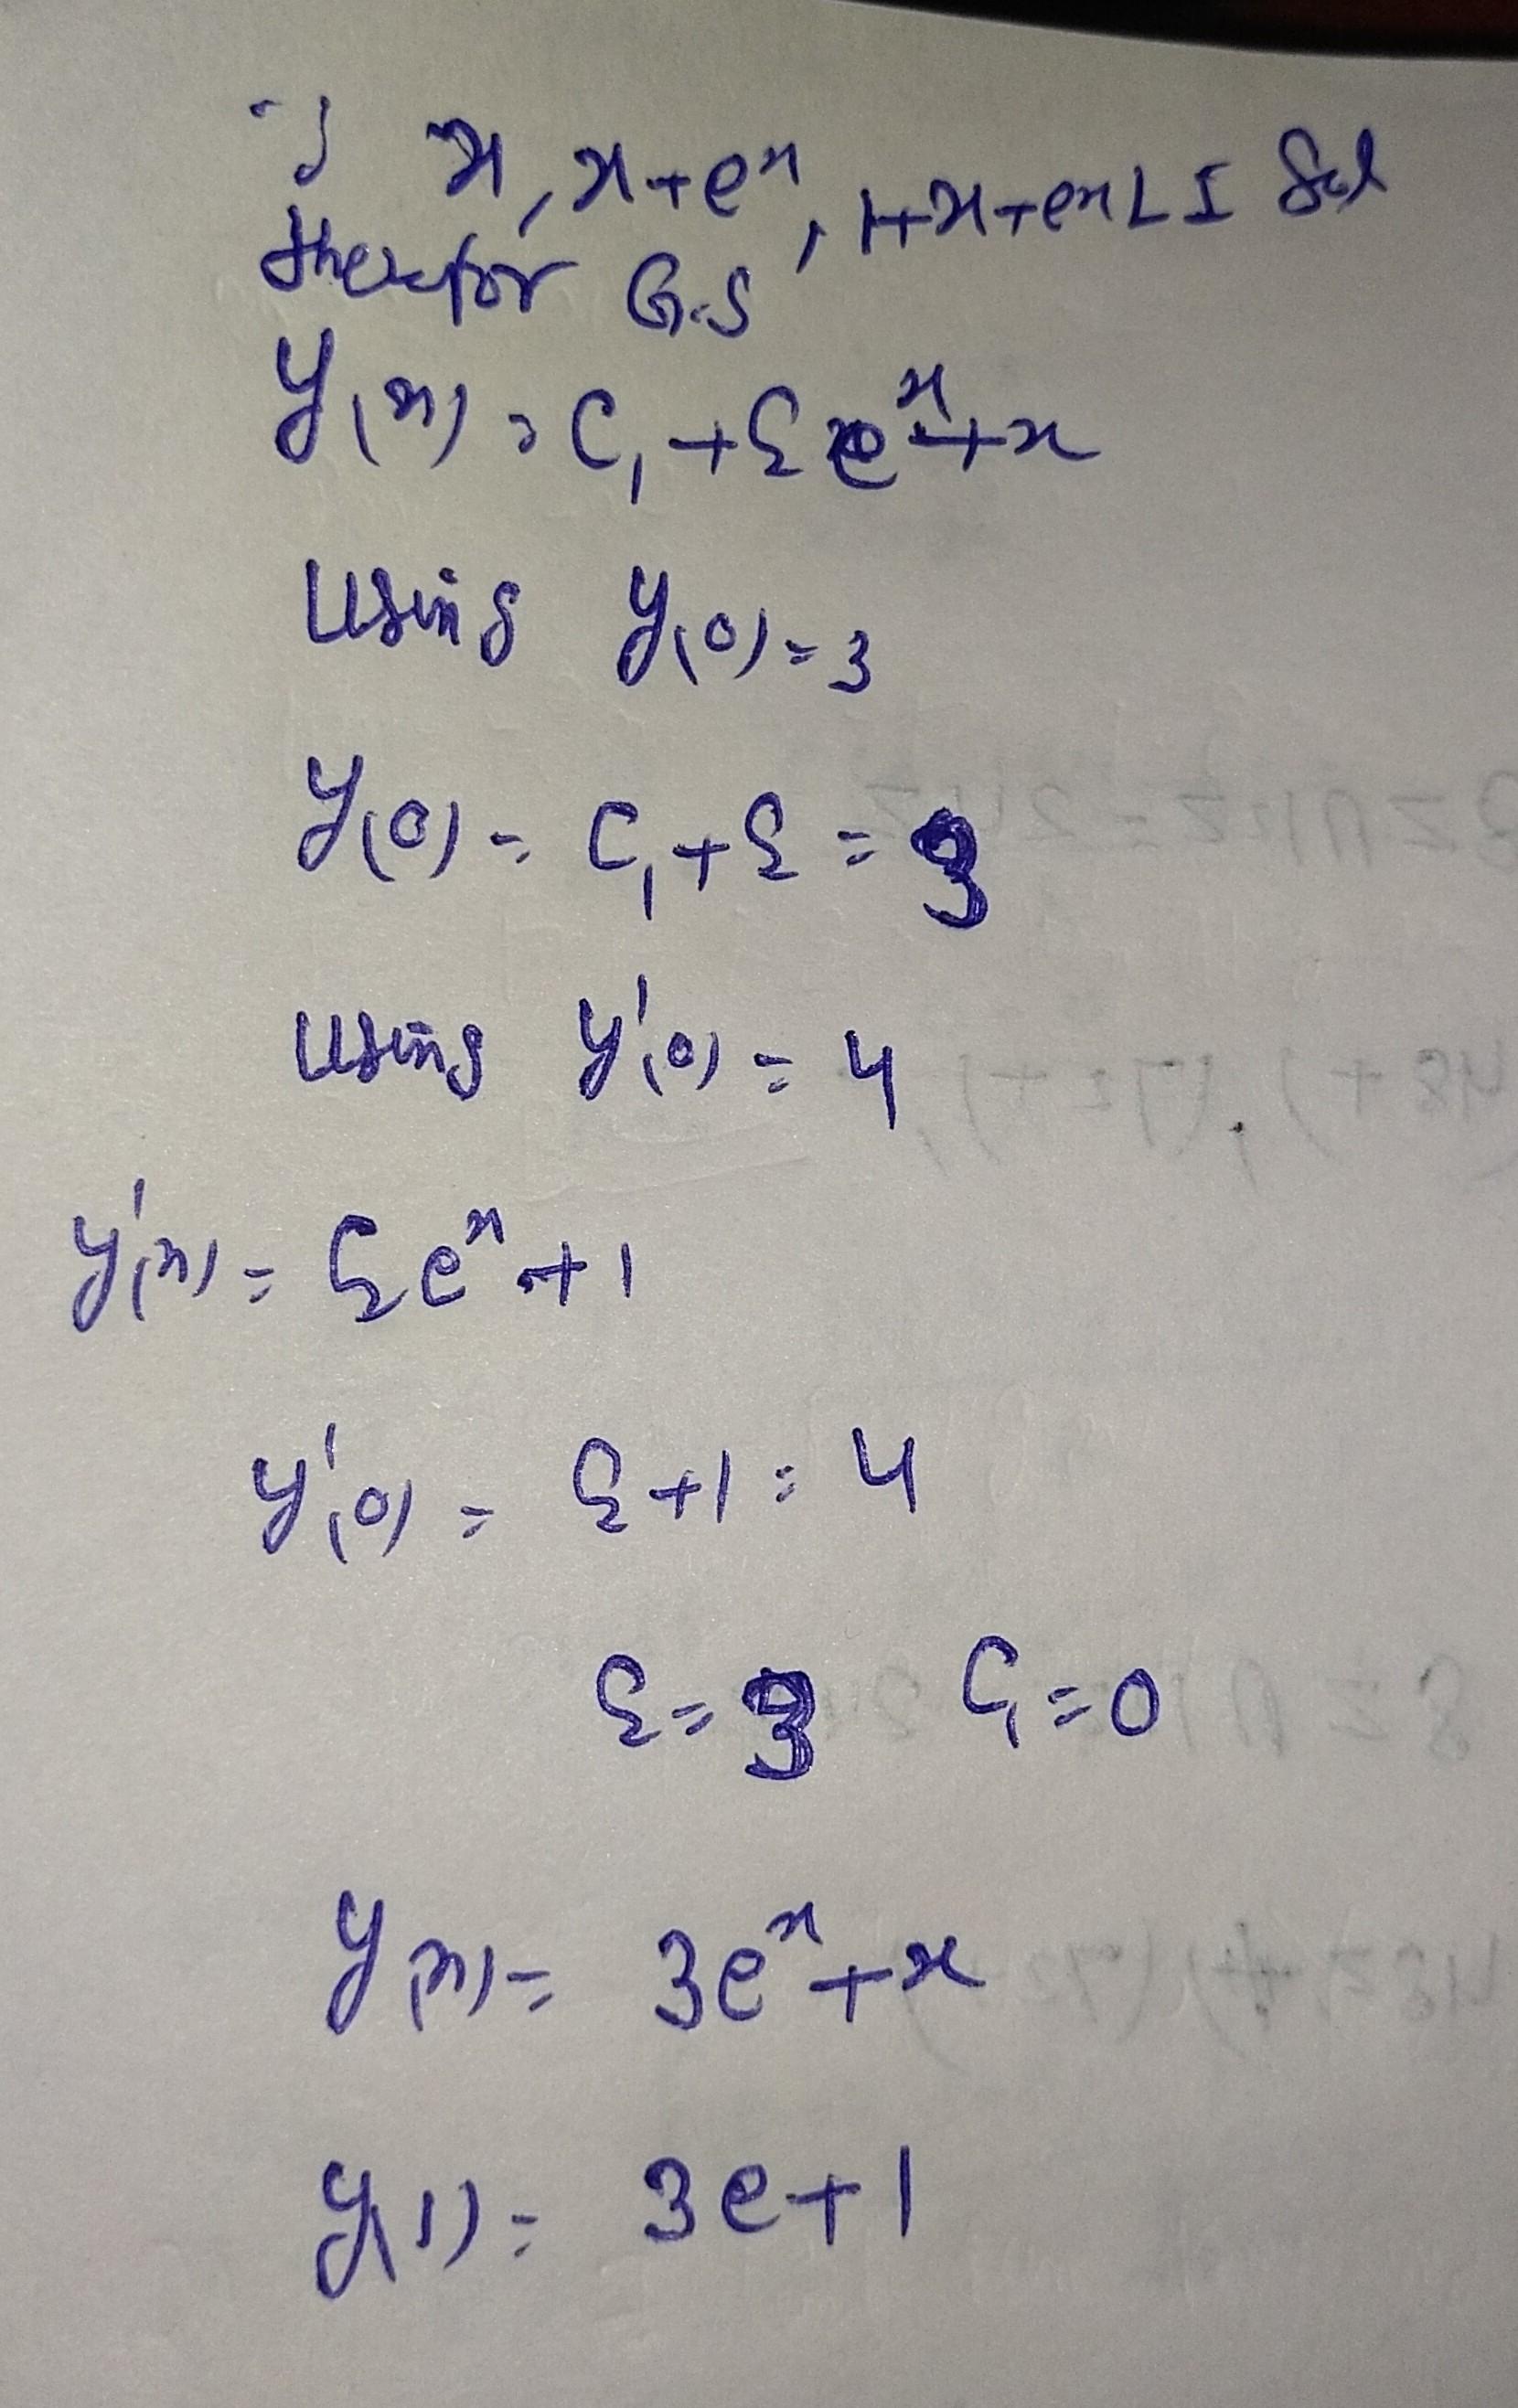 x, x+eˣ, 1+x+eˣ LI Sol
therefor G.S
y(x) = C₁ + C₂eˣ + x
Using y(0) = 3
y(0) = C₁ + C₂ = 3
Using y'(0) = 4
y'(x) = C₂eˣ + 1
y'(0) = C₂ + 1 = 4
C₂ = 3 C₁ = 0
y(x) = 3eˣ + x
y(1) = 3e + 1